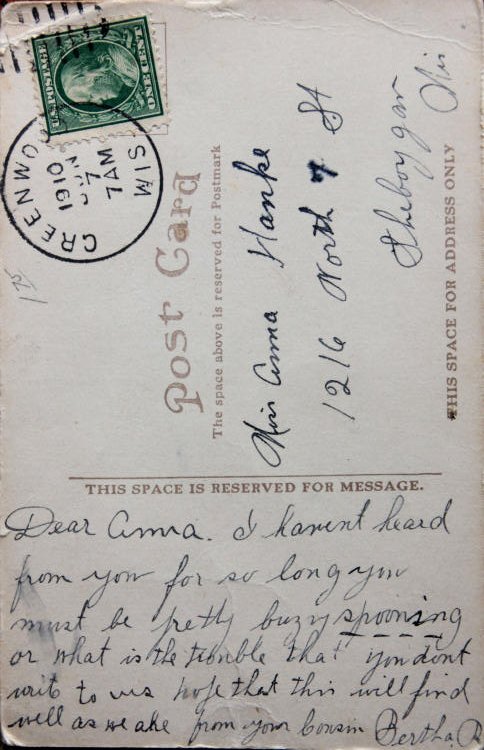 U.S. POSTAGE
ONE CENT
GREENWO
SIM
JUN
7
7 AM
1910
1 75
Post Card
The space above is reserved for Postmark
Miss Anna Hanke
1216 North 7 St
Sheboygan
Wis
THIS SPACE FOR ADDRESS ONLY
THIS SPACE IS RESERVED FOR MESSAGE.
Dear Anna. I havent heard
from you for so long you
must be pretty buzy spooning
or what is the trouble that you dont
writ to us hope that this will find
well as we are from your Cousin Bertha